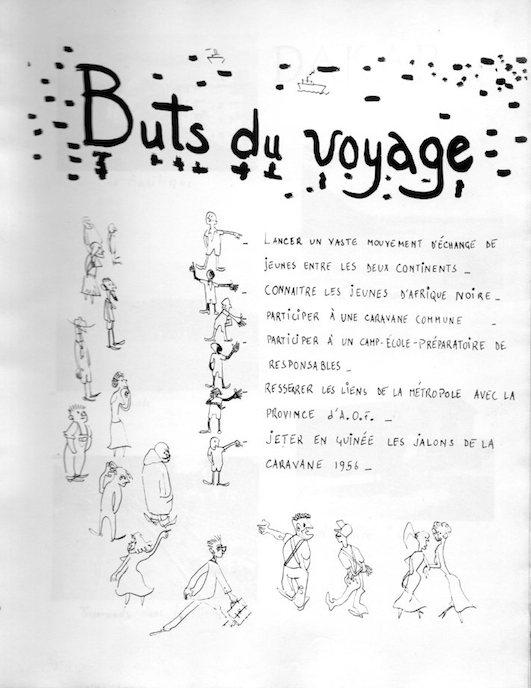 Buts du voyage
- LANCER UN VASTE MOUVEMENT D'ÉCHANGE DE
JEUNES ENTRE LES DEUX CONTINENTS -
- CONNAITRE LES JEUNES D'AFRIQUE NOIRE -
- PARTICIPER À UNE CARAVANE COMMUNE -
- PARTICIPER À UN CAMP-ÉCOLE-PRÉPARATOIRE DE
RESPONSABLES -
- RESSERRER LES LIENS DE LA MÉTROPOLE AVEC LA
PROVINCE d'A.O.F. -
- JETER EN GUINÉE LES JALONS DE LA
CARAVANE 1956 -